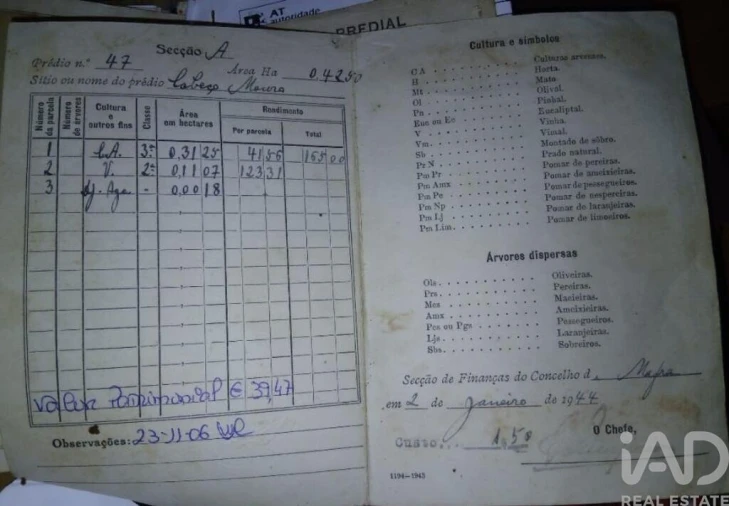 AT
autoridade
PREDIAL
Secção A
Prédio n.º 47 Área Ha 0.4250
Sítio ou nome do prédio Cabeço Moura
Número da parcela
Número de árvores
Cultura e outros fins
Classe
Área em hectares
Rendimento
Por parcela
Total
1 C.A. 3ª 0,31 25 41 56 165 00
2 V. 2ª 0,11 07 123 31
3 - 0,00 18
Valor Patrimonial € 39,47
Observações: 23-11-06
Cultura e símbolos
CA . . . . . . . . Culturas arvenses.
H . . . . . . . . Horta.
Mt . . . . . . . . Mata.
Ol . . . . . . . . Olival.
Pn . . . . . . . . Pinhal.
Euc ou Ec . . . . . . . . Eucaliptal.
V . . . . . . . . Vinha.
Vm. . . . . . . . . Vimal.
Sb . . . . . . . . Montado de sôbro.
Pr N . . . . . . . . Prado natural.
Pm Pr . . . . . . . . Pomar de pereiras.
Pm Amx . . . . . . . . Pomar de ameixieiras.
Pm Pe . . . . . . . . Pomar de pessegueiros.
Pm Np . . . . . . . . Pomar de nespereiras.
Pm Lj . . . . . . . . Pomar de laranjeiras.
Pm Lim. . . . . . . . . Pomar de limoeiros.
Árvores dispersas
Ols . . . . . . . . Oliveiras.
Prs . . . . . . . . Pereiras.
Mcs . . . . . . . . Macieiras.
Amx . . . . . . . . Ameixieiras.
Pes ou Pgs . . . . . . . . Pessegueiros.
Ljs . . . . . . . . Laranjeiras.
Sbs . . . . . . . . Sobreiros.
Secção de Finanças do Concelho de Mafra
em 2 de Janeiro de 1944
O Chefe,
Custo... 1$50
1194-1943
iAD
REAL ESTATE